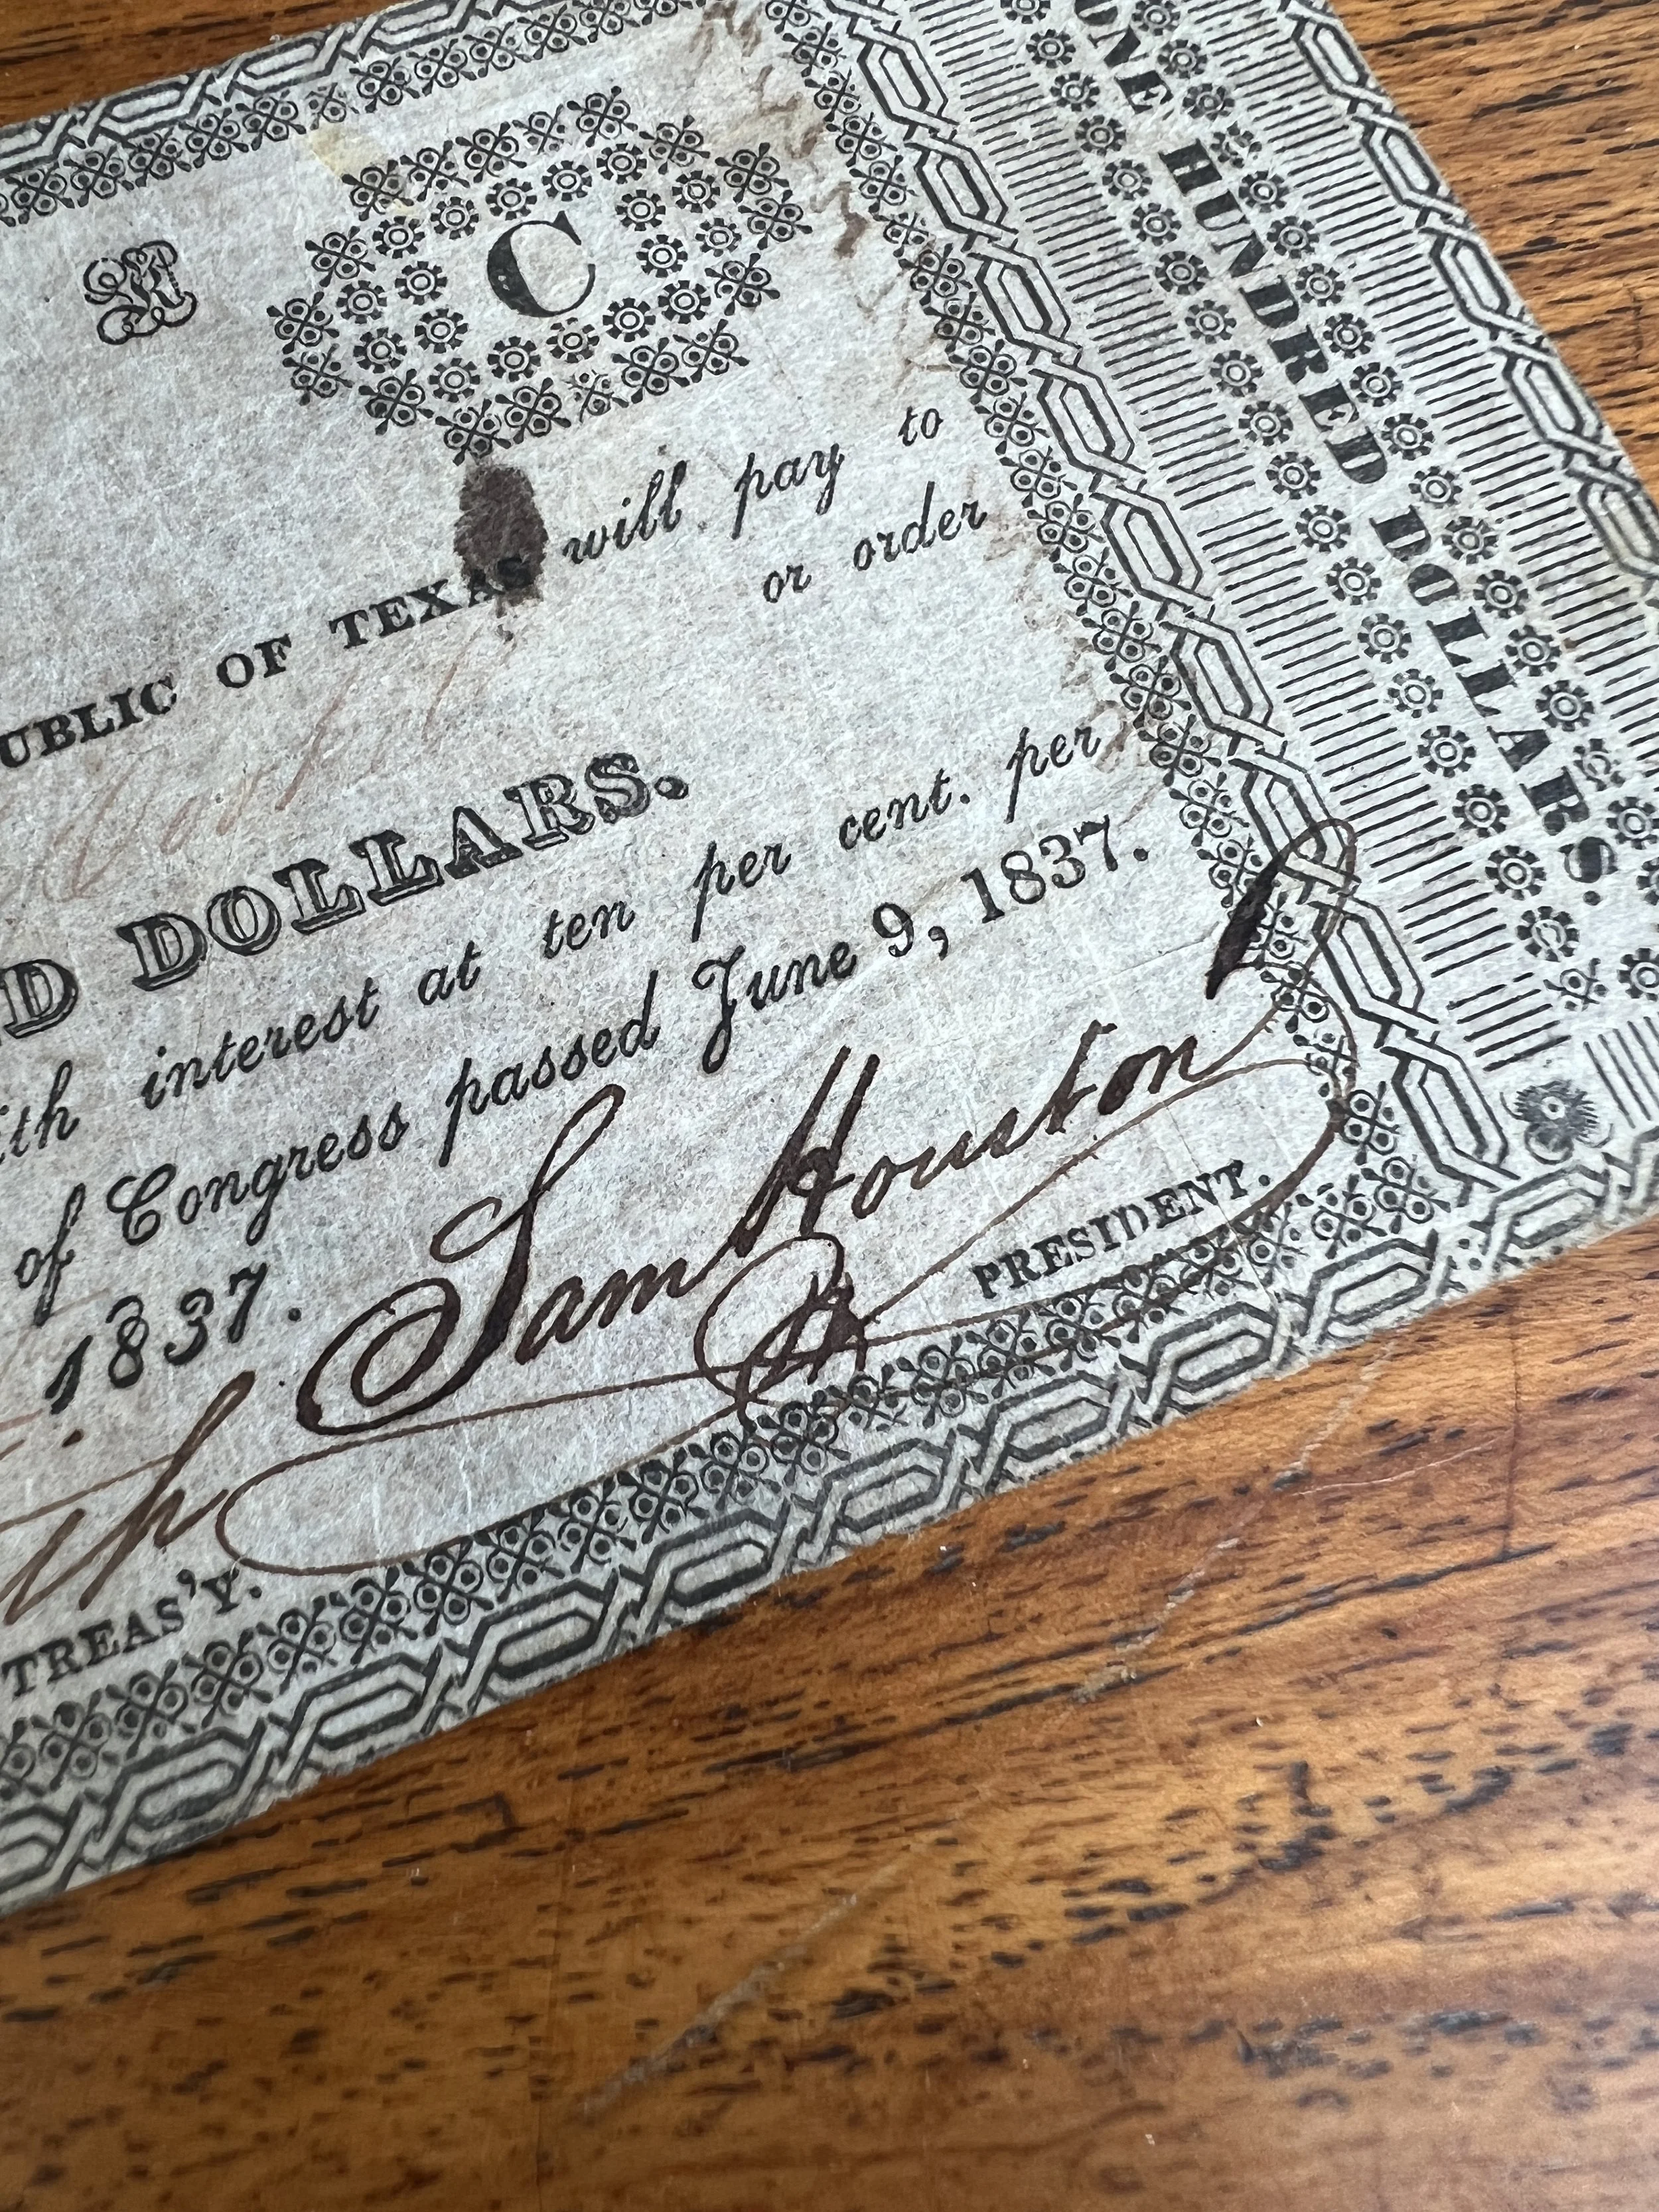 C
UBLIC OF TEXAS will pay to
or order
D DOLLARS.
ith interest at ten per cent. per
of Congress passed June 9, 1837.
1837.
Sam Houston
PRESIDENT.
TREAS'Y.
ONE HUNDRED DOLLARS.